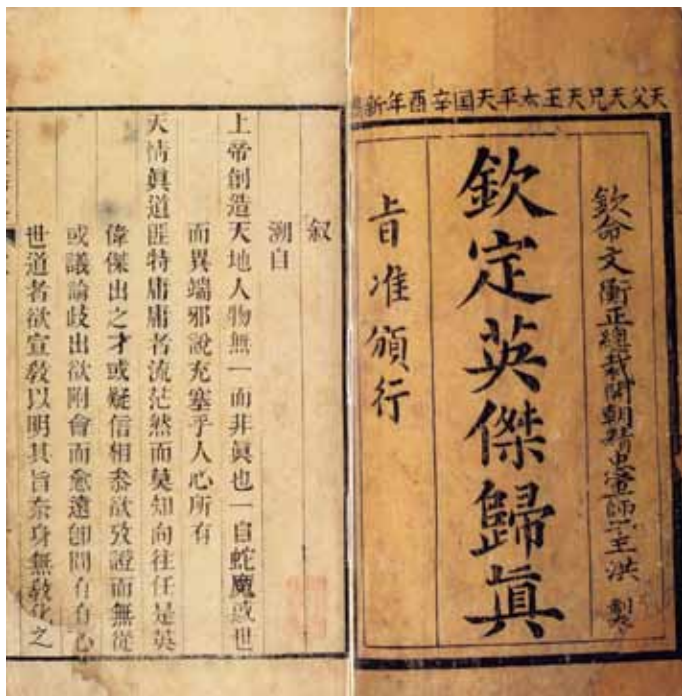 天父天兄天王太平天国辛酉年新
欽命文衡正總裁開朝精忠軍師干王洪 製
欽定英傑歸眞
旨准頒行
叙
溯自
上帝創造天地人物無一而非眞也一自蛇魔惑世
而異端邪說充塞乎人心所有
天情眞道匪特庸庸者流茫然而莫知向往任是英
偉傑出之才或疑信相叅欲攷證而無從
或議論歧出欲附會而愈遠卽間有有心
世道者欲宣敎以明其旨奈身無敎化之